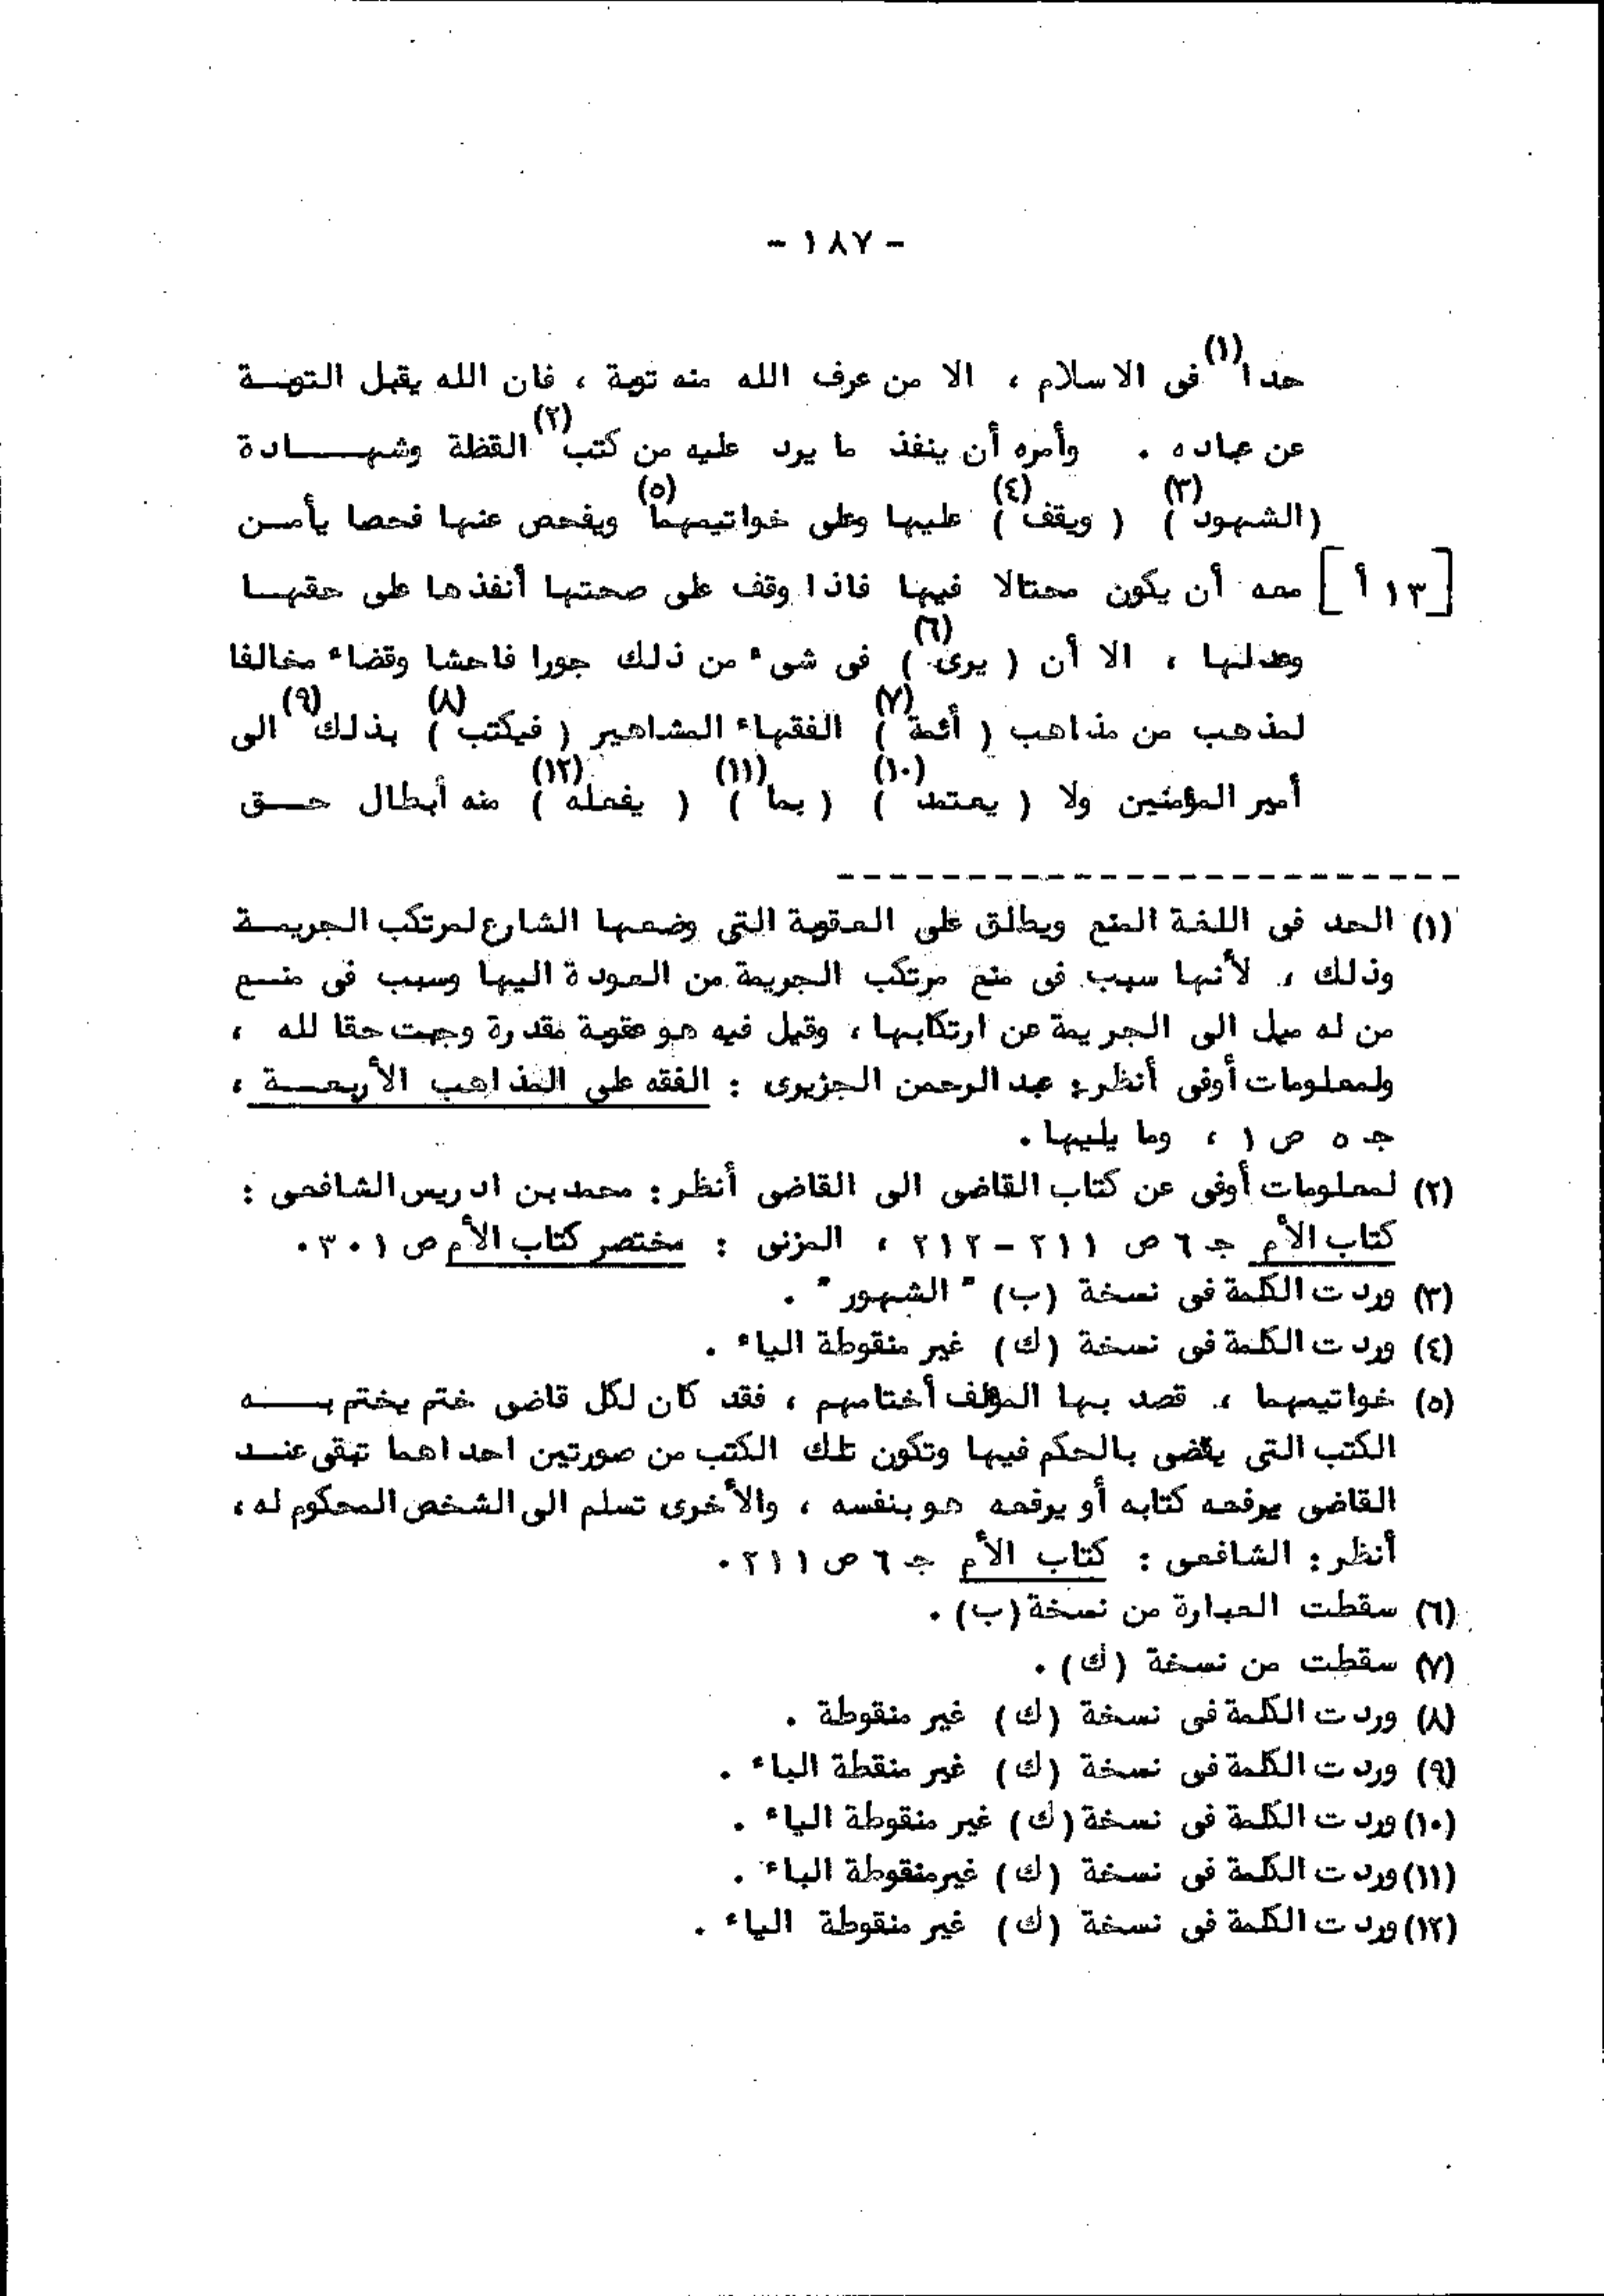 - ١٨٧ -
حدا(١) فى الاسلام ، الا من عرف الله منه توبة ، فان الله يقبل التوبـــة
عن عباده . وأمره أن ينفذ ما يرد عليه من كتب(٢) القظة وشهـــــادة
(الشهود(٣)) ( ويقف(٤)) عليها وعلى خواتيمهما(٥) ويفحص عنها فحصا يأمـــن
[١٣ أ] معه أن يكون محتالا فيها فاذا وقف على صحتها أنفذها على حقهــا
وعدلها ، الا أن ( يرى(٦)) فى شىء من ذلك جورا فاحشا وقضاء مخالفا
لمذهب من مذاهب ( أئمة(٧)) الفقهاء المشاهير ( فيكتب(٨)) بذلك(٩) الى
أمير المؤمنين ولا ( يعتمد(١٠)) ( بما(١١)) ( يفعله(١٢)) منه أبطال حـــق
(١) الحد فى اللغة المنع ويطلق على العقوبة التى وضعها الشارع لمرتكب الجريمــة
وذلك ، لأنها سبب فى منع مرتكب الجريمة من العودة اليها وسبب فى منــع
من له ميل الى الجريمة عن ارتكابها ، وقيل فيه هو عقوبة مقدرة وجبت حقا لله ،
ولمعلومات أوفى أنظر : عبد الرحمن الجزيرى : الفقه على المذاهب الأربعـــة ،
جـ ٥ ص ١ ، وما يليها .
(٢) لمعلومات أوفى عن كتاب القاضى الى القاضى أنظر : محمد بن ادريس الشافعى :
كتاب الأم جـ ٦ ص ٢١١ - ٢١٢ ، المزنى : مختصر كتاب الأم ص ٣٠١ .
(٣) وردت الكلمة فى نسخة (ب) " الشهور " .
(٤) وردت الكلمة فى نسخة (ك) غير منقوطة الياء .
(٥) خواتيمهما ، قصد بها المؤلف أختامهم ، فقد كان لكل قاضى ختم يختم بـــــه
الكتب التى يقضى بالحكم فيها وتكون تلك الكتب من صورتين احداهما تبقى عنــد
القاضى يرفعه كتابه أو يرفعه هو بنفسه ، والأخرى تسلم الى الشخص المحكوم له ،
أنظر : الشافعى : كتاب الأم جـ ٦ ص ٢١١ .
(٦) سقطت العبارة من نسخة (ب) .
(٧) سقطت من نسخة (ك) .
(٨) وردت الكلمة فى نسخة (ك) غير منقوطة .
(٩) وردت الكلمة فى نسخة (ك) غير منقطة الباء .
(١٠) وردت الكلمة فى نسخة (ك) غير منقوطة الياء .
(١١) وردت الكلمة فى نسخة (ك) غير منقوطة الباء .
(١٢) وردت الكلمة فى نسخة (ك) غير منقوطة الياء .